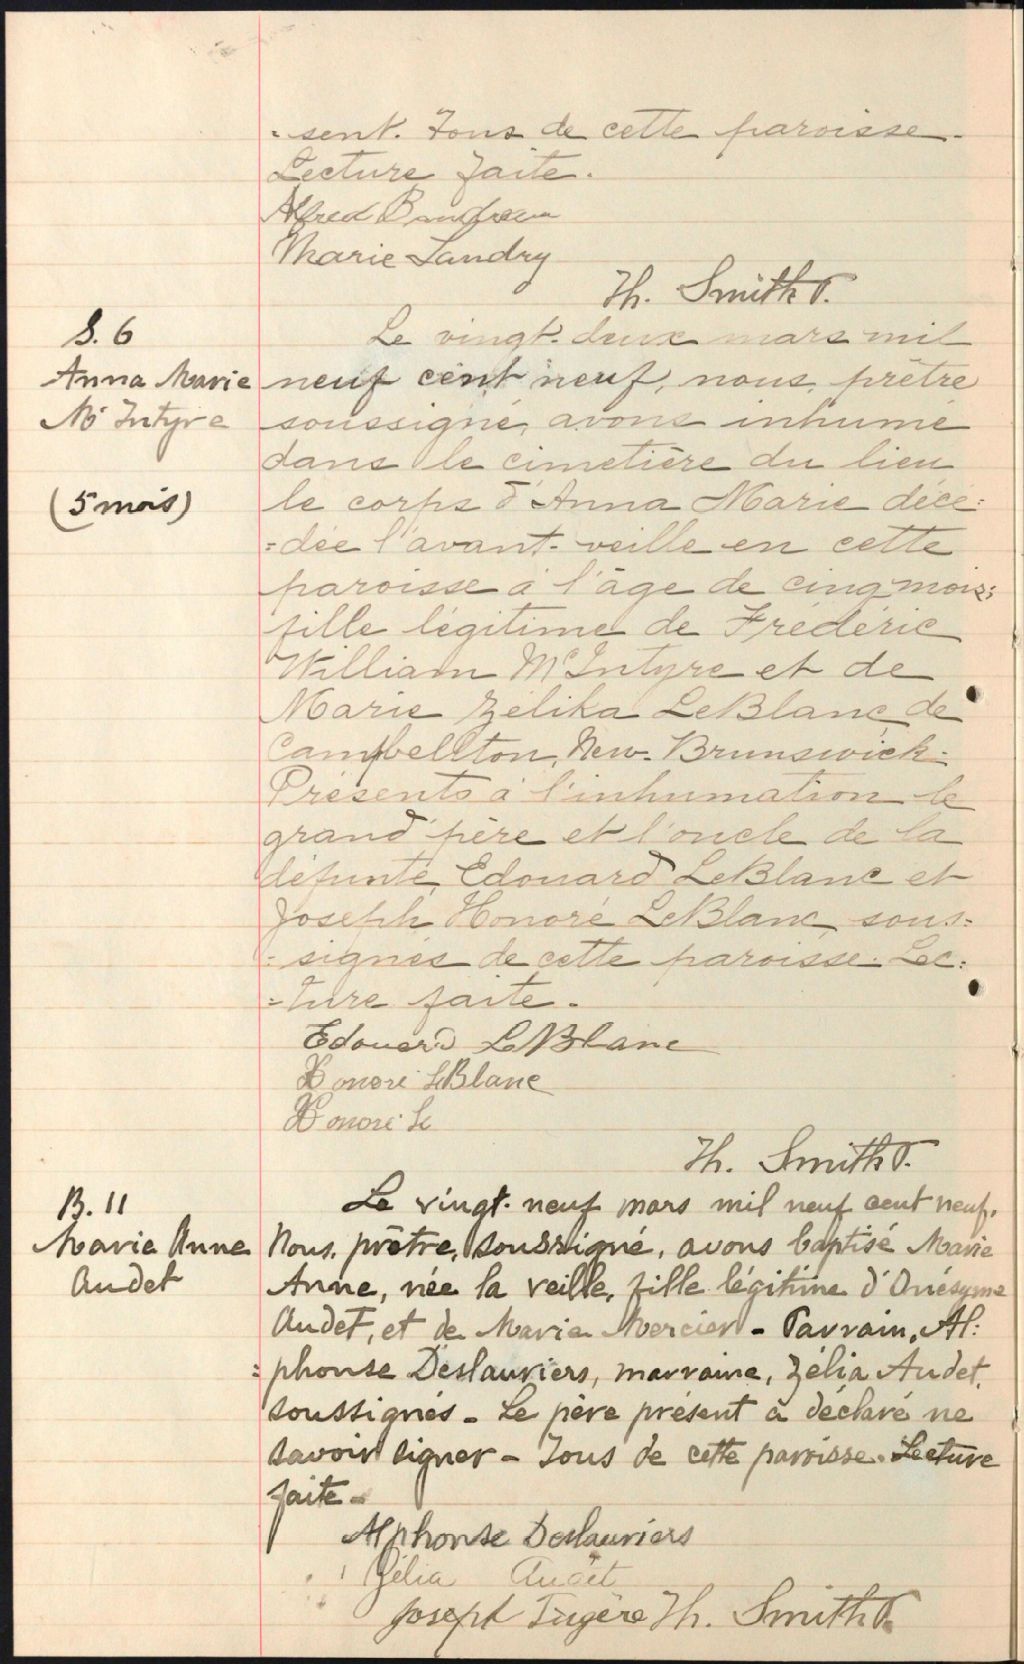 -sent. Tous de cette paroisse-
Lecture faite.
Alfred
Marie Landry
Th. Smith P.
S. 6
Anna Marie
Mc Intyre
(5 mois)
Le vingt-deux mars mil
neuf cent neuf, nous, prêtre
soussigné, avons inhumé
dans le cimetière du lieu
le corps d'Anna Marie décé=
=dée l'avant-veille en cette
paroisse à l'âge de cinq mois;
fille légitime de Frédéric
William McIntyre et de
Marie Zélika LeBlanc, de
Campbellton, New-Brunswick-
Présents à l'inhumation le
grand'père et l'oncle de la
défunte, Edouard LeBlanc et
Joseph Honoré LeBlanc, sous=
=signés de cette paroisse. Lec=
=ture faite.
Edouard LeBlanc
Honoré LeBlanc
Honoré Le
Th. Smith P.
B. 11
Marie Anne
Audet
Le vingt-neuf mars mil neuf cent neuf,
Nous, prêtre, soussigné, avons baptisé Marie
Anne, née la veille, fille légitime d'Onésyme
Audet, et de Marie Mercier - Parrain, Al=
=phonse Deslauriers, marraine, Zélia Audet,
soussignés - Le père présent a déclaré ne
savoir signer - Tous de cette paroisse. Lecture
faite -
Alphonse Deslauriers
Zélia Audet
Joseph Th. Smith P.